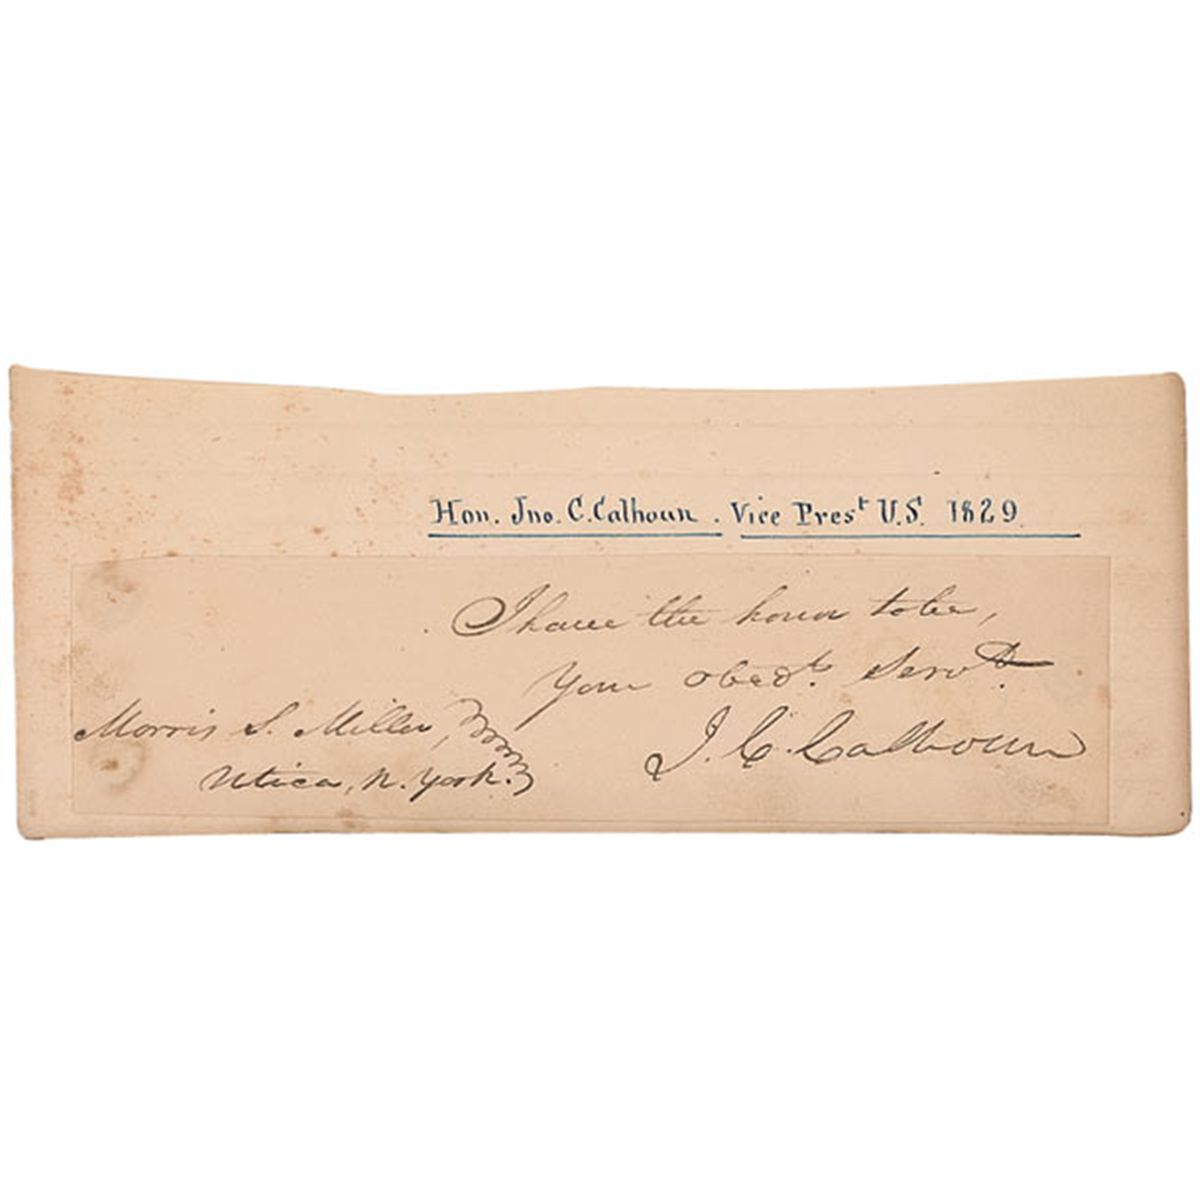 Hon. Jno. C. Calhoun. Vice Presᵗ U.S. 1829.
I have the honor to be,
Your obedᵗ. Servᵗ.
Morris S. Miller,
J. C. Calhoun
Utica, N. York.